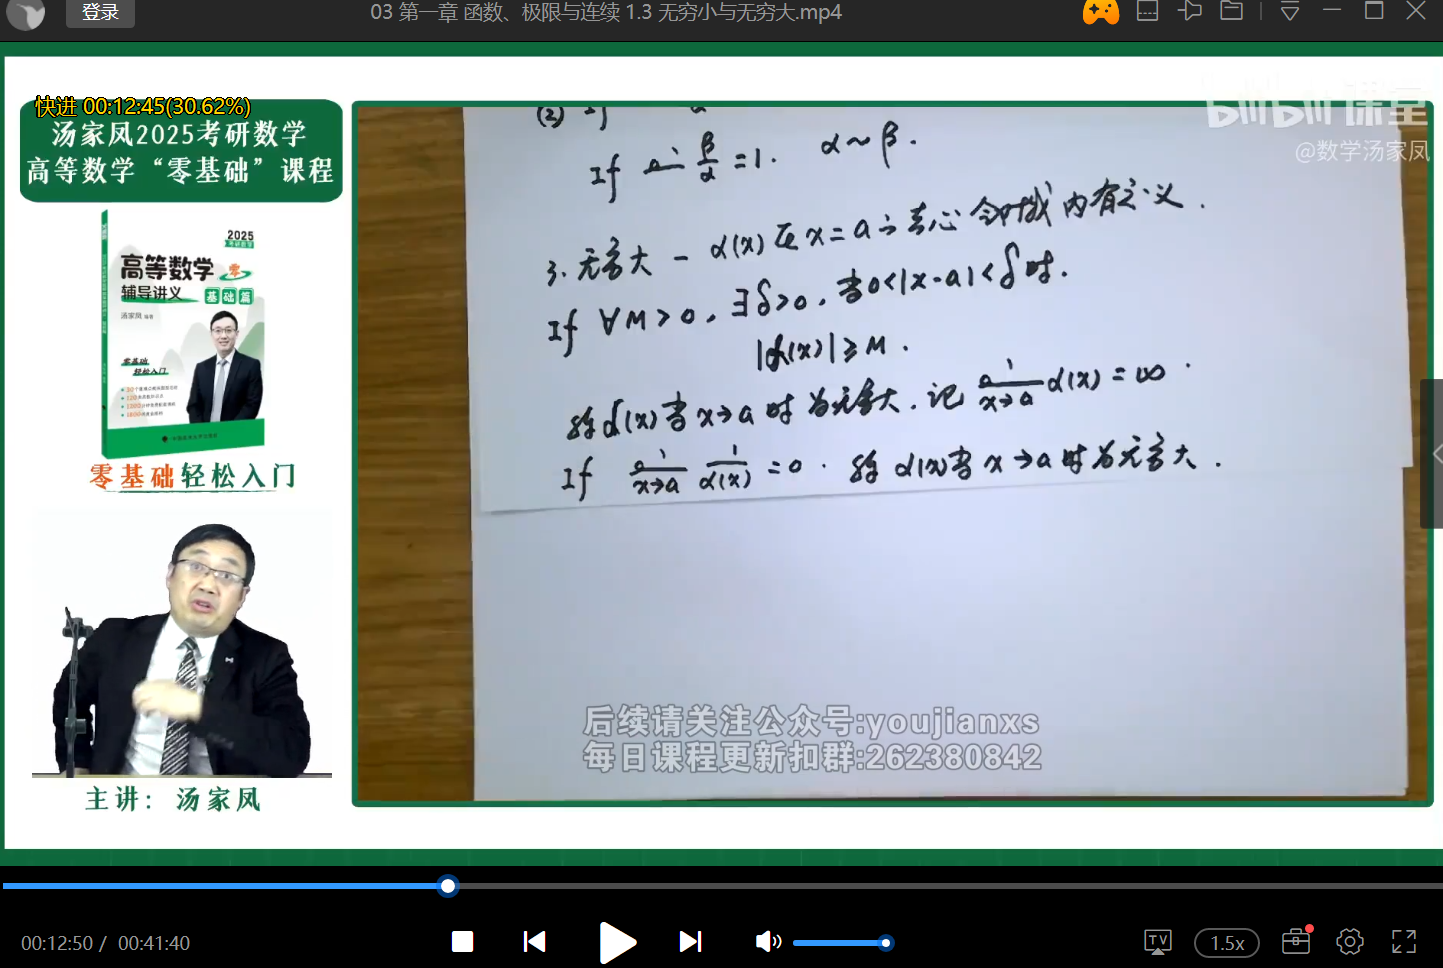 登录
03 第一章 函数、极限与连续 1.3 无穷小与无穷大.mp4
快进 00:12:45(30.62%)
汤家凤2025考研数学
高等数学“零基础”课程
2025
高等数学 零
辅导讲义 基础篇
汤家凤
零基础
轻松入门
零基础轻松入门
主讲：汤家凤
bilibili 课堂
@数学汤家凤
(2) If
If lim β/α = 1. α ~ β.
3. 无穷大 - α(x) 在 x = a 之去心邻域内有定义.
If ∀M > 0, ∃δ > 0, 当 0 < |x - a| < δ 时.
|α(x)| ≥ M.
称 α(x) 当 x→a 时为无穷大. 记 lim x→a α(x) = ∞.
If lim x→a 1/α(x) = 0. 称 α(x) 当 x→a 时为无穷大.
后续请关注公众号:youjianxs
每日课程更新扣群:262380842
00:12:50 / 00:41:40
TV
1.5x